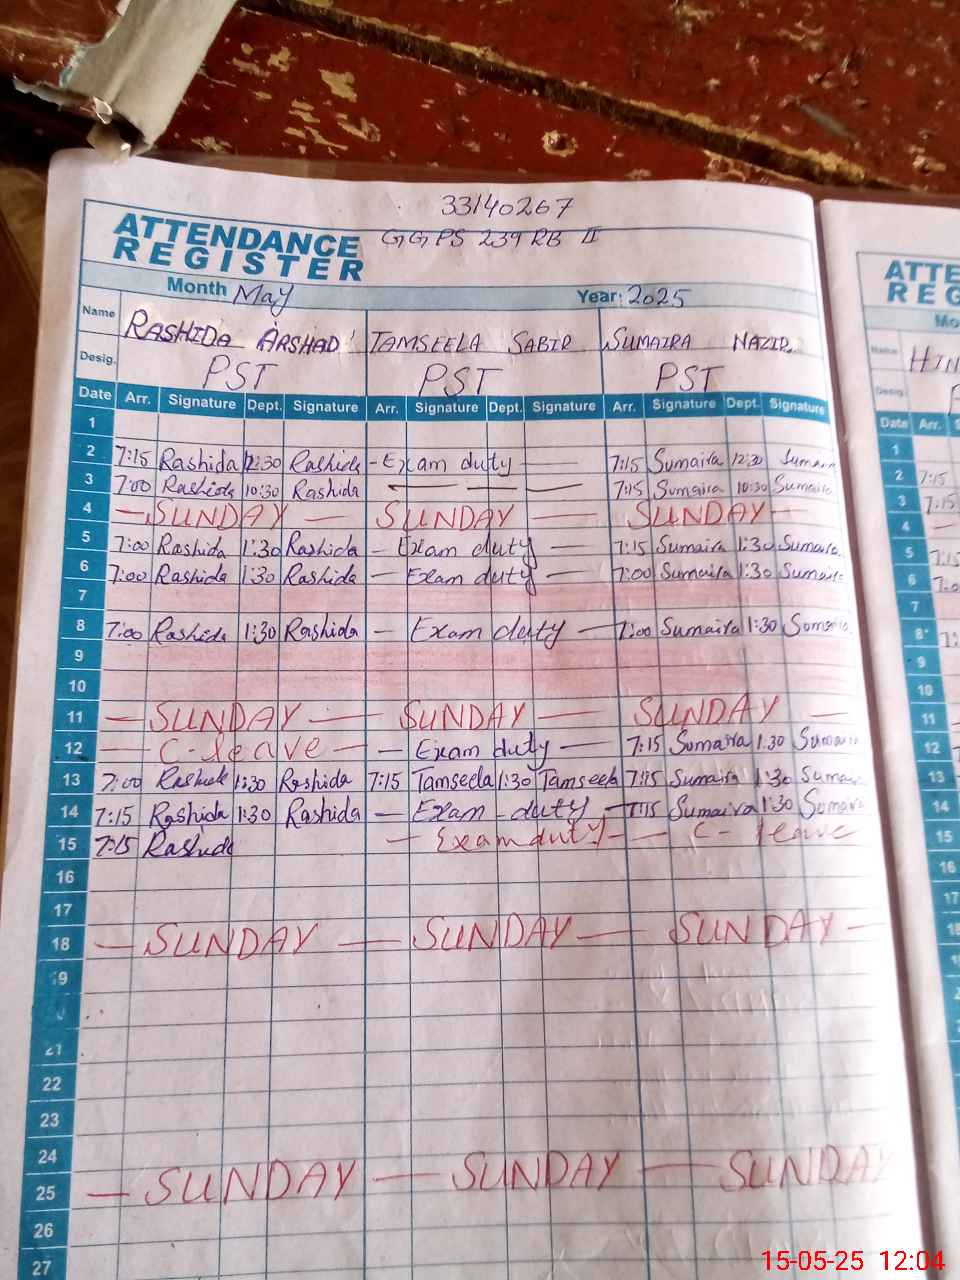 33140267
GGPS 239 RB II
ATTENDANCE
REGISTER
Month May Year: 2025
Name RASHIDA ARSHAD TAMSEELA SABIR SUMAIRA NAZIR
Desig. PST PST PST
Date Arr. Signature Dept. Signature Arr. Signature Dept. Signature Arr. Signature Dept. Signature
1
2 7:15 Rashida 12:30 Rashida - Exam duty — 7:15 Sumaira 12:30 Sumaira
3 7:00 Rashida 10:30 Rashida — — — 7:15 Sumaira 10:30 Sumaira
4 — SUNDAY — SUNDAY — SUNDAY —
5 7:00 Rashida 1:30 Rashida — Exam duty — 7:15 Sumaira 1:30 Sumaira
6 7:00 Rashida 1:30 Rashida — Exam duty — 7:00 Sumaira 1:30 Sumaira
7
8 7:00 Rashida 1:30 Rashida — Exam duty — 7:00 Sumaira 1:30 Sumaira
9
10
11 — SUNDAY — SUNDAY — SUNDAY —
12 — C-leave — — Exam duty — 7:15 Sumaira 1:30 Sumaira
13 7:00 Rashida 1:30 Rashida 7:15 Tamseela 1:30 Tamseela 7:15 Sumaira 1:30 Sumaira
14 7:15 Rashida 1:30 Rashida — Exam - duty — 7:15 Sumaira 1:30 Sumaira
15 7:15 Rashida — Exam duty — — C- leave
16
17
18 — SUNDAY — SUNDAY — SUNDAY —
19
21
22
23
24
25 — SUNDAY — SUNDAY — SUNDAY
26
27
ATTE
REG
Mo
Name HIN
Desig.
Date Arr.
1
2 7:15
3 7:15
4 —
5 7:15
6
7
8
9
10
11 —
12
13
14
15
16
17
18
15-05-25 12:04